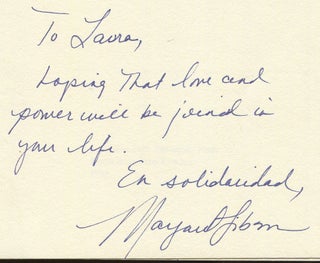 To Laura,
hoping that love and
power will be joined in
your life.
En solidaridad,
Margaret